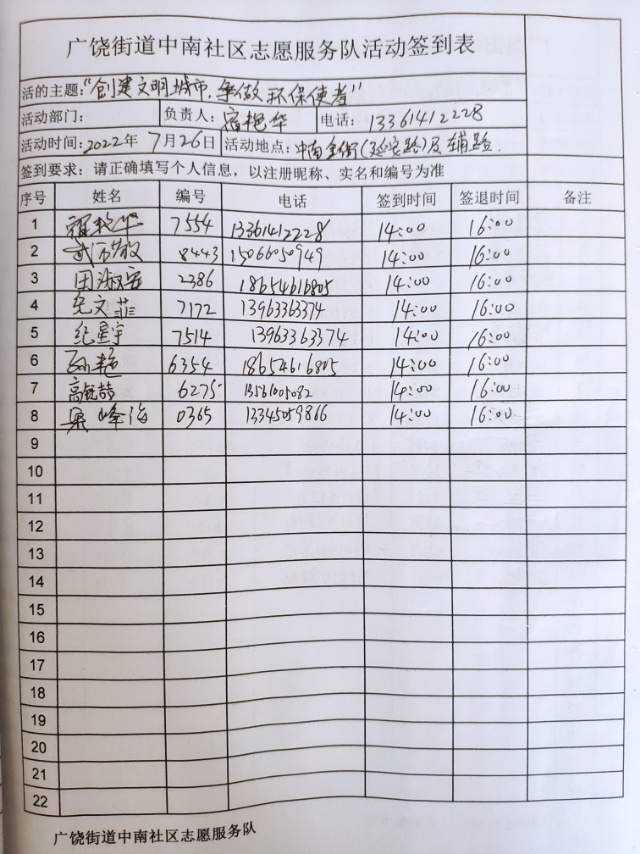 广饶街道中南社区志愿服务队活动签到表
活的主题:"创建文明城市,争做环保使者"
活动部门: 负责人: 艳华 电话: 13361412228
活动时间: 2022年7月26日 活动地点: 中南金街(延安路)及辅路.
签到要求: 请正确填写个人信息,以注册昵称、实名和编号为准
序号 姓名 编号 电话 签到时间 签退时间 备注
1 艳华 7554 13361412228 14:00 16:00
2 8443 15066050949 14:00 16:00
3 田淑安 2386 18654616805 14:00 16:00
4 纪文菲 7172 13963363374 14:00 16:00
5 纪星宇 7514 13963363374 14:00 16:00
6 孙艳 6354 18654616805 14:00 16:00
7 高 6275 13561005082 14:00 16:00
8 峰海 0365 13345059866 14:00 16:00
9
10
11
12
13
14
15
16
17
18
19
20
21
22
广饶街道中南社区志愿服务队